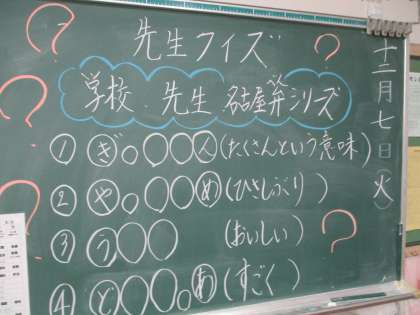 先生クイズ
学校 先生 名古屋弁シリーズ
① ぎ。○○く(たくさんという意味)
② や。○○め(ひさしぶり)
③ う○○ (おいしい)
④ ど○○。あ(すごく)
十二月七日(火)